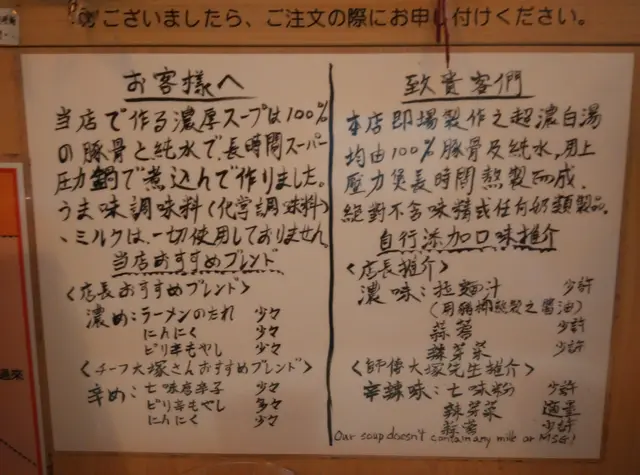 ございましたら、ご注文の際にお申し付けください。
お客様へ
当店で作る濃厚スープは100%
の豚骨と純水で、長時間スーパー
圧力鍋で煮込んで作りました。
うま味調味料(化学調味料)
、ミルクは、一切使用しておりません。
当店おすすめブレンド
〈店長おすすめブレンド〉
濃め:ラーメンのたれ 少々
にんにく 少々
ピリ辛もやし 少々
〈チーフ大塚さんおすすめブレンド〉
辛め:七味唐辛子 少々
ピリ辛もやし 多々
にんにく 少々
致貴客們
本店即場製作之超濃白湯
均由100%豚骨及純水,用上
壓力煲長時間熬製而成,
絕對不含味精或任何奶類製品。
自行添加口味推介
〈店長推介〉
濃味:拉麵汁 少許
(用豬脚熬製之醬油)
蒜蓉 少許
辣芽菜 少許
〈師傅大塚先生推介〉
辛辣味:七味粉 少許
辣芽菜 適量
蒜蓉 少許
Our soup doesn't contain any milk or MSG!